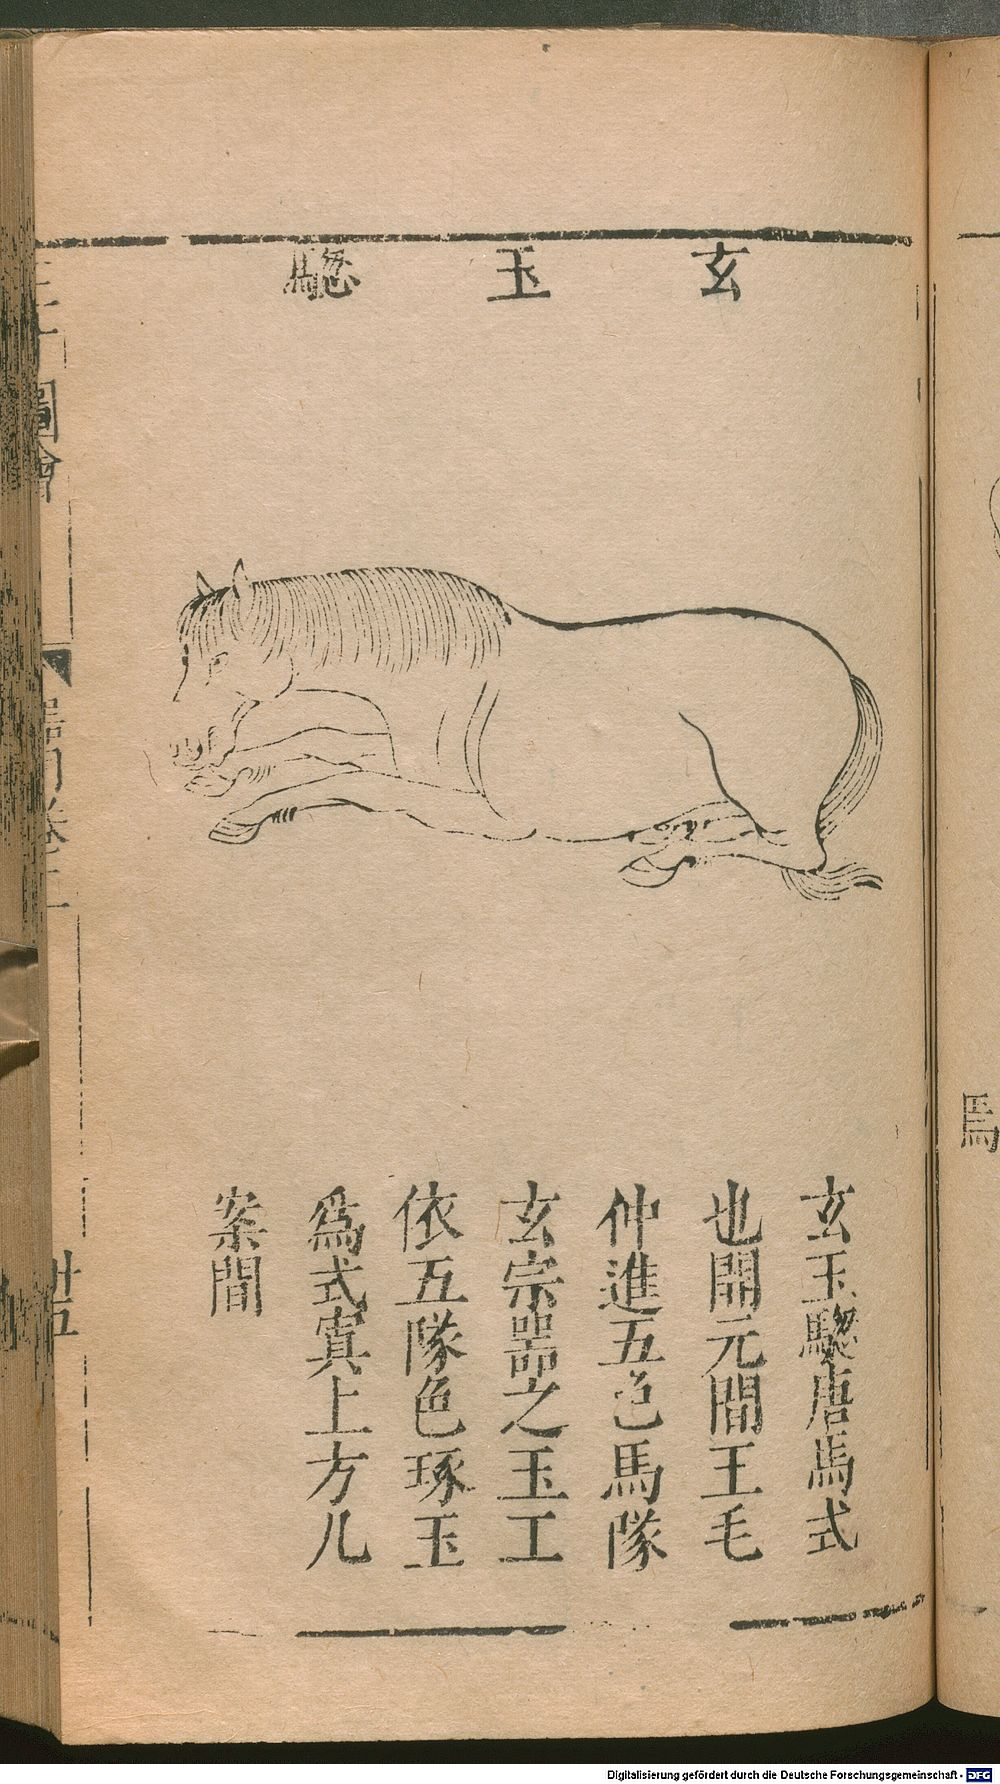 玄玉驄
玄玉驄唐馬式
也開元間王毛
仲進五色馬隊
玄宗噐之玉工
依五隊色琢玉
為式寘上方几
案間
圖會
卷二
廿五
馬
Digitalisierung gefördert durch die Deutsche Forschungsgemeinschaft - DFG